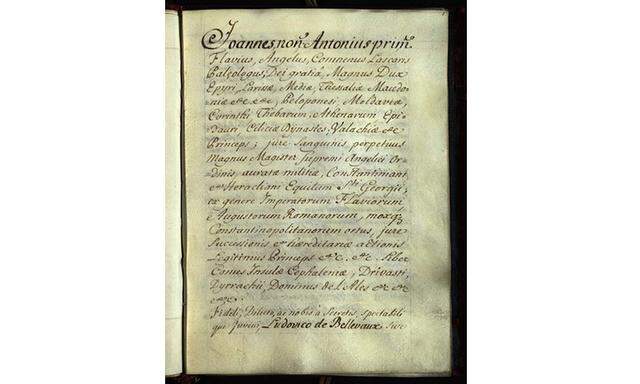 Joannes, non9 Antonius prim9
Flavius, Angelus, Comnenus Lascaris
Palęologus, Dei gratiâ, Magnus Dux
Epyri, Larissæ, Mediæ, Thesaliæ Macedo
niæ &c &c, Peloponesi, Moldaviæ,
Corinthi Thebarum, Athenarum Epi
dauri, Ciliciæ Dynastes, Valachiæ &c
Princeps; jure sanguinis, perpetuus
Magnus Magister supremi Angelici Or
dinis, auratæ militiæ, Constantiniani
& Heracliani Equitum Georgii;
ex genere Imperatorum Flaviorum,
è Augustorum Romanorum, moxq3
Constantinopolitanorum ortus, jure
Successionis & hæreditariæ actionis
Legitimus Princeps &c. &c. liber
Comes Insulæ Cephaleniæ, Drivasti,
Dyrrachii, Dominus de l'Ales &c &c
&c.
Fideli, Dilecto, ac nobis à secretis, spectabili
Ludovico de Bellevaux